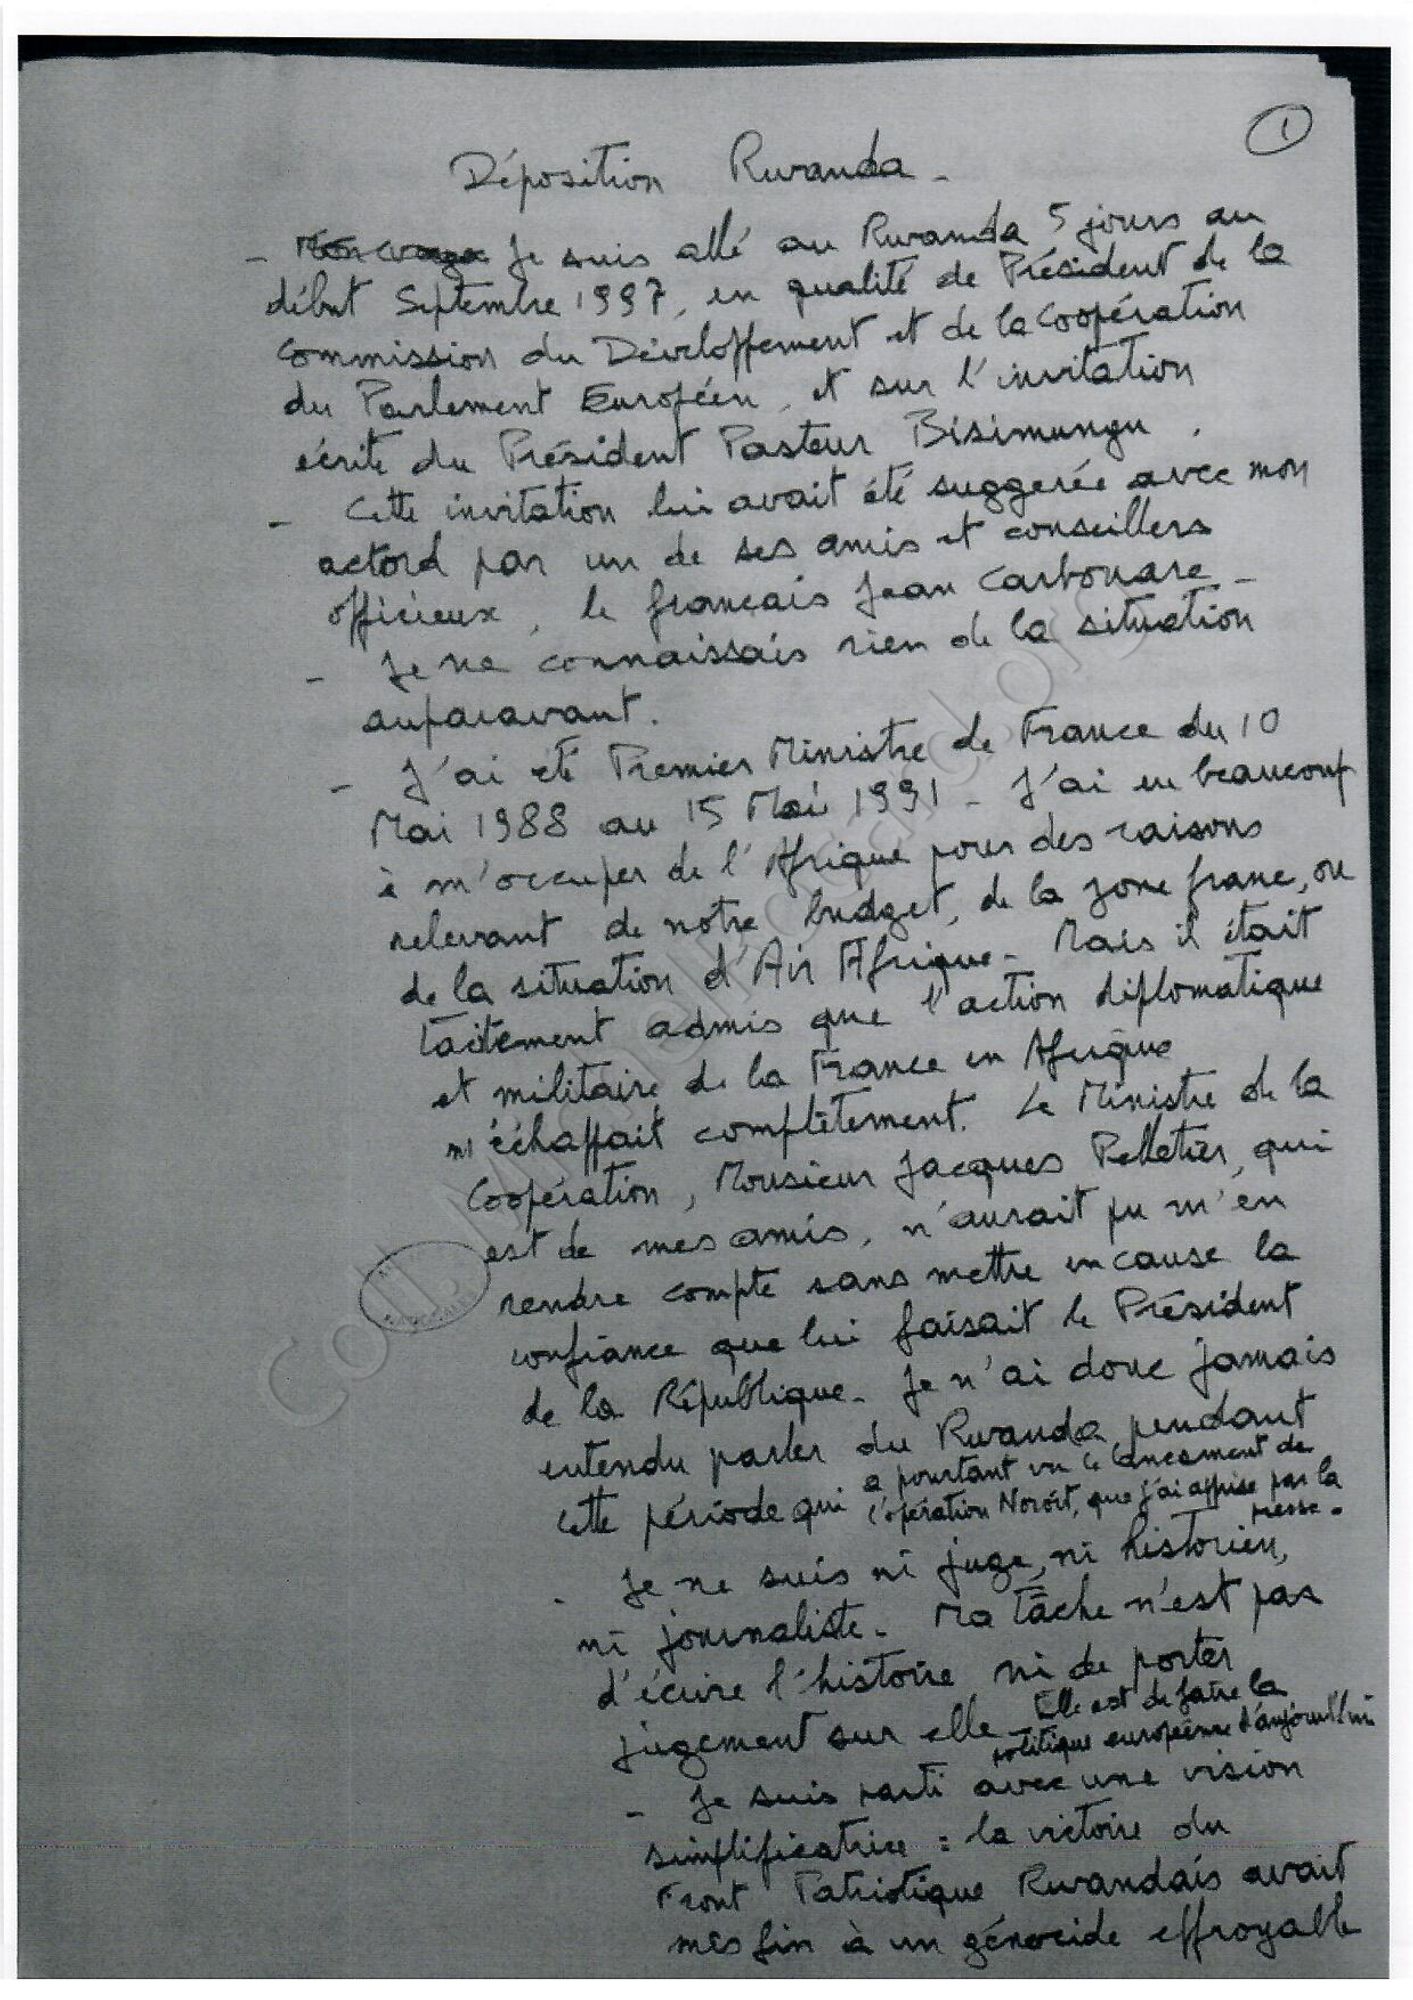 1
Déposition Rwanda -
- Je suis allé au Rwanda 5 jours au
début Septembre 1997, en qualité de Président de la
Commission du Développement et de la Coopération
du Parlement Européen, et sur l'invitation
écrite du Président Pasteur Bisimungu.
- Cette invitation lui avait été suggérée avec mon
accord par un de ses amis et conseillers
officieux, le français Jean Carbonare -
- Je ne connaissais rien de la situation
auparavant.
- J'ai été Premier Ministre de France du 10
Mai 1988 au 15 Mai 1991 - J'ai eu beaucoup
à m'occuper de l'Afrique pour des raisons
relevant de notre budget, de la zone franc, ou
de la situation d'Air Afrique - Mais il était
tacitement admis que l'action diplomatique
et militaire de la France en Afrique
m'échappait complètement. Le Ministre de la
Coopération, Monsieur Jacques Pelletier, qui
est de mes amis, n'aurait pu m'en
rendre compte sans mettre en cause la
confiance que lui faisait le Président
de la République - Je n'ai donc jamais
entendu parler du Rwanda pendant
cette période qui a pourtant vu le lancement de
l'opération Noroît, que j'ai apprise par la
presse -
- Je ne suis ni juge, ni historien,
ni journaliste - Ma tâche n'est pas
d'écrire l'histoire ni de porter
jugement sur elle - Elle est de faire la
politique européenne d'aujourd'hui
- Je suis parti avec une vision
simplificatrice : la victoire du
Front Patriotique Rwandais avait
mis fin à un génocide effroyable
Coll. MichelRocard.org